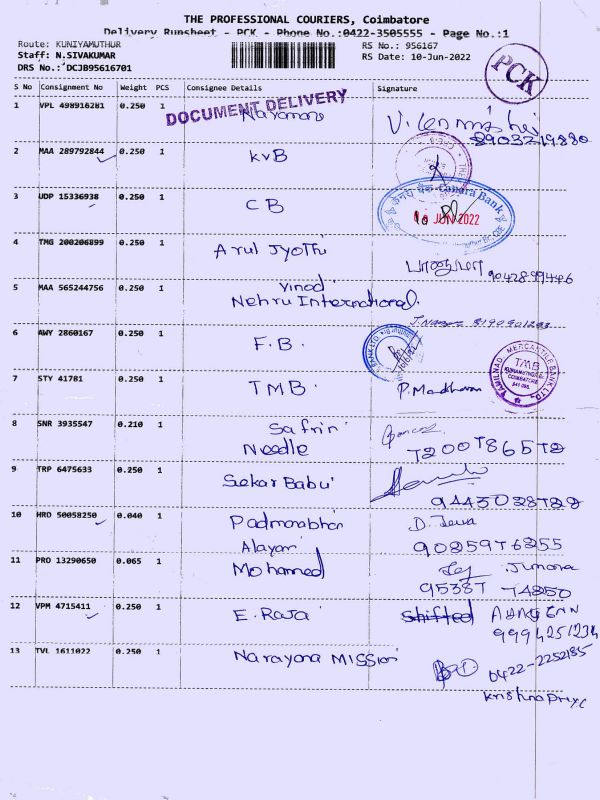 THE PROFESSIONAL COURIERS, Coimbatore
Delivery Runsheet - PCK - Phone No.:0422-3505555 - Page No.:1
Route: KUNIYAMUTHUR
RS No.: 956167
Staff: N.SIVAKUMAR
RS Date: 10-Jun-2022
DRS No.: DCJB95616701
PCK
S No Consignment No Weight PCS Consignee Details Signature
DOCUMENT DELIVERY
1 VPL 498916281 0.250 1
8903219880
2 MAA 289792844 0.250 1 KVB
3 UDP 15336938 0.250 1 CB
Canara Bank
10 JUN 2022
4 TMG 200206899 0.250 1 Arul Jyothi
9042899446
5 MAA 565244756 0.250 1 Vinod
Nehru International.
6 AWY 2860167 0.250 1 F.B.
7 STY 41781 0.250 1 TMB. P. Madhavan
TAMILNAD MERCANTILE BANK LTD.
TMB
COIMBATORE
8 SNR 3935547 0.210 1 Safrin
Needle
7200786572
9 TRP 6475633 0.250 1 Sekar Babu
9445038788
10 HRD 50058250 0.040 1 Padmanabhan D. Jewa
Alayam 9025976255
11 PRO 13290650 0.065 1 Mohamed
95387 74850
12 VPM 4715411 0.250 1 E. Raja shifted
9994251234
13 TVL 1611022 0.250 1 Narayana MISSION
0422-2252185
Krishnapriya